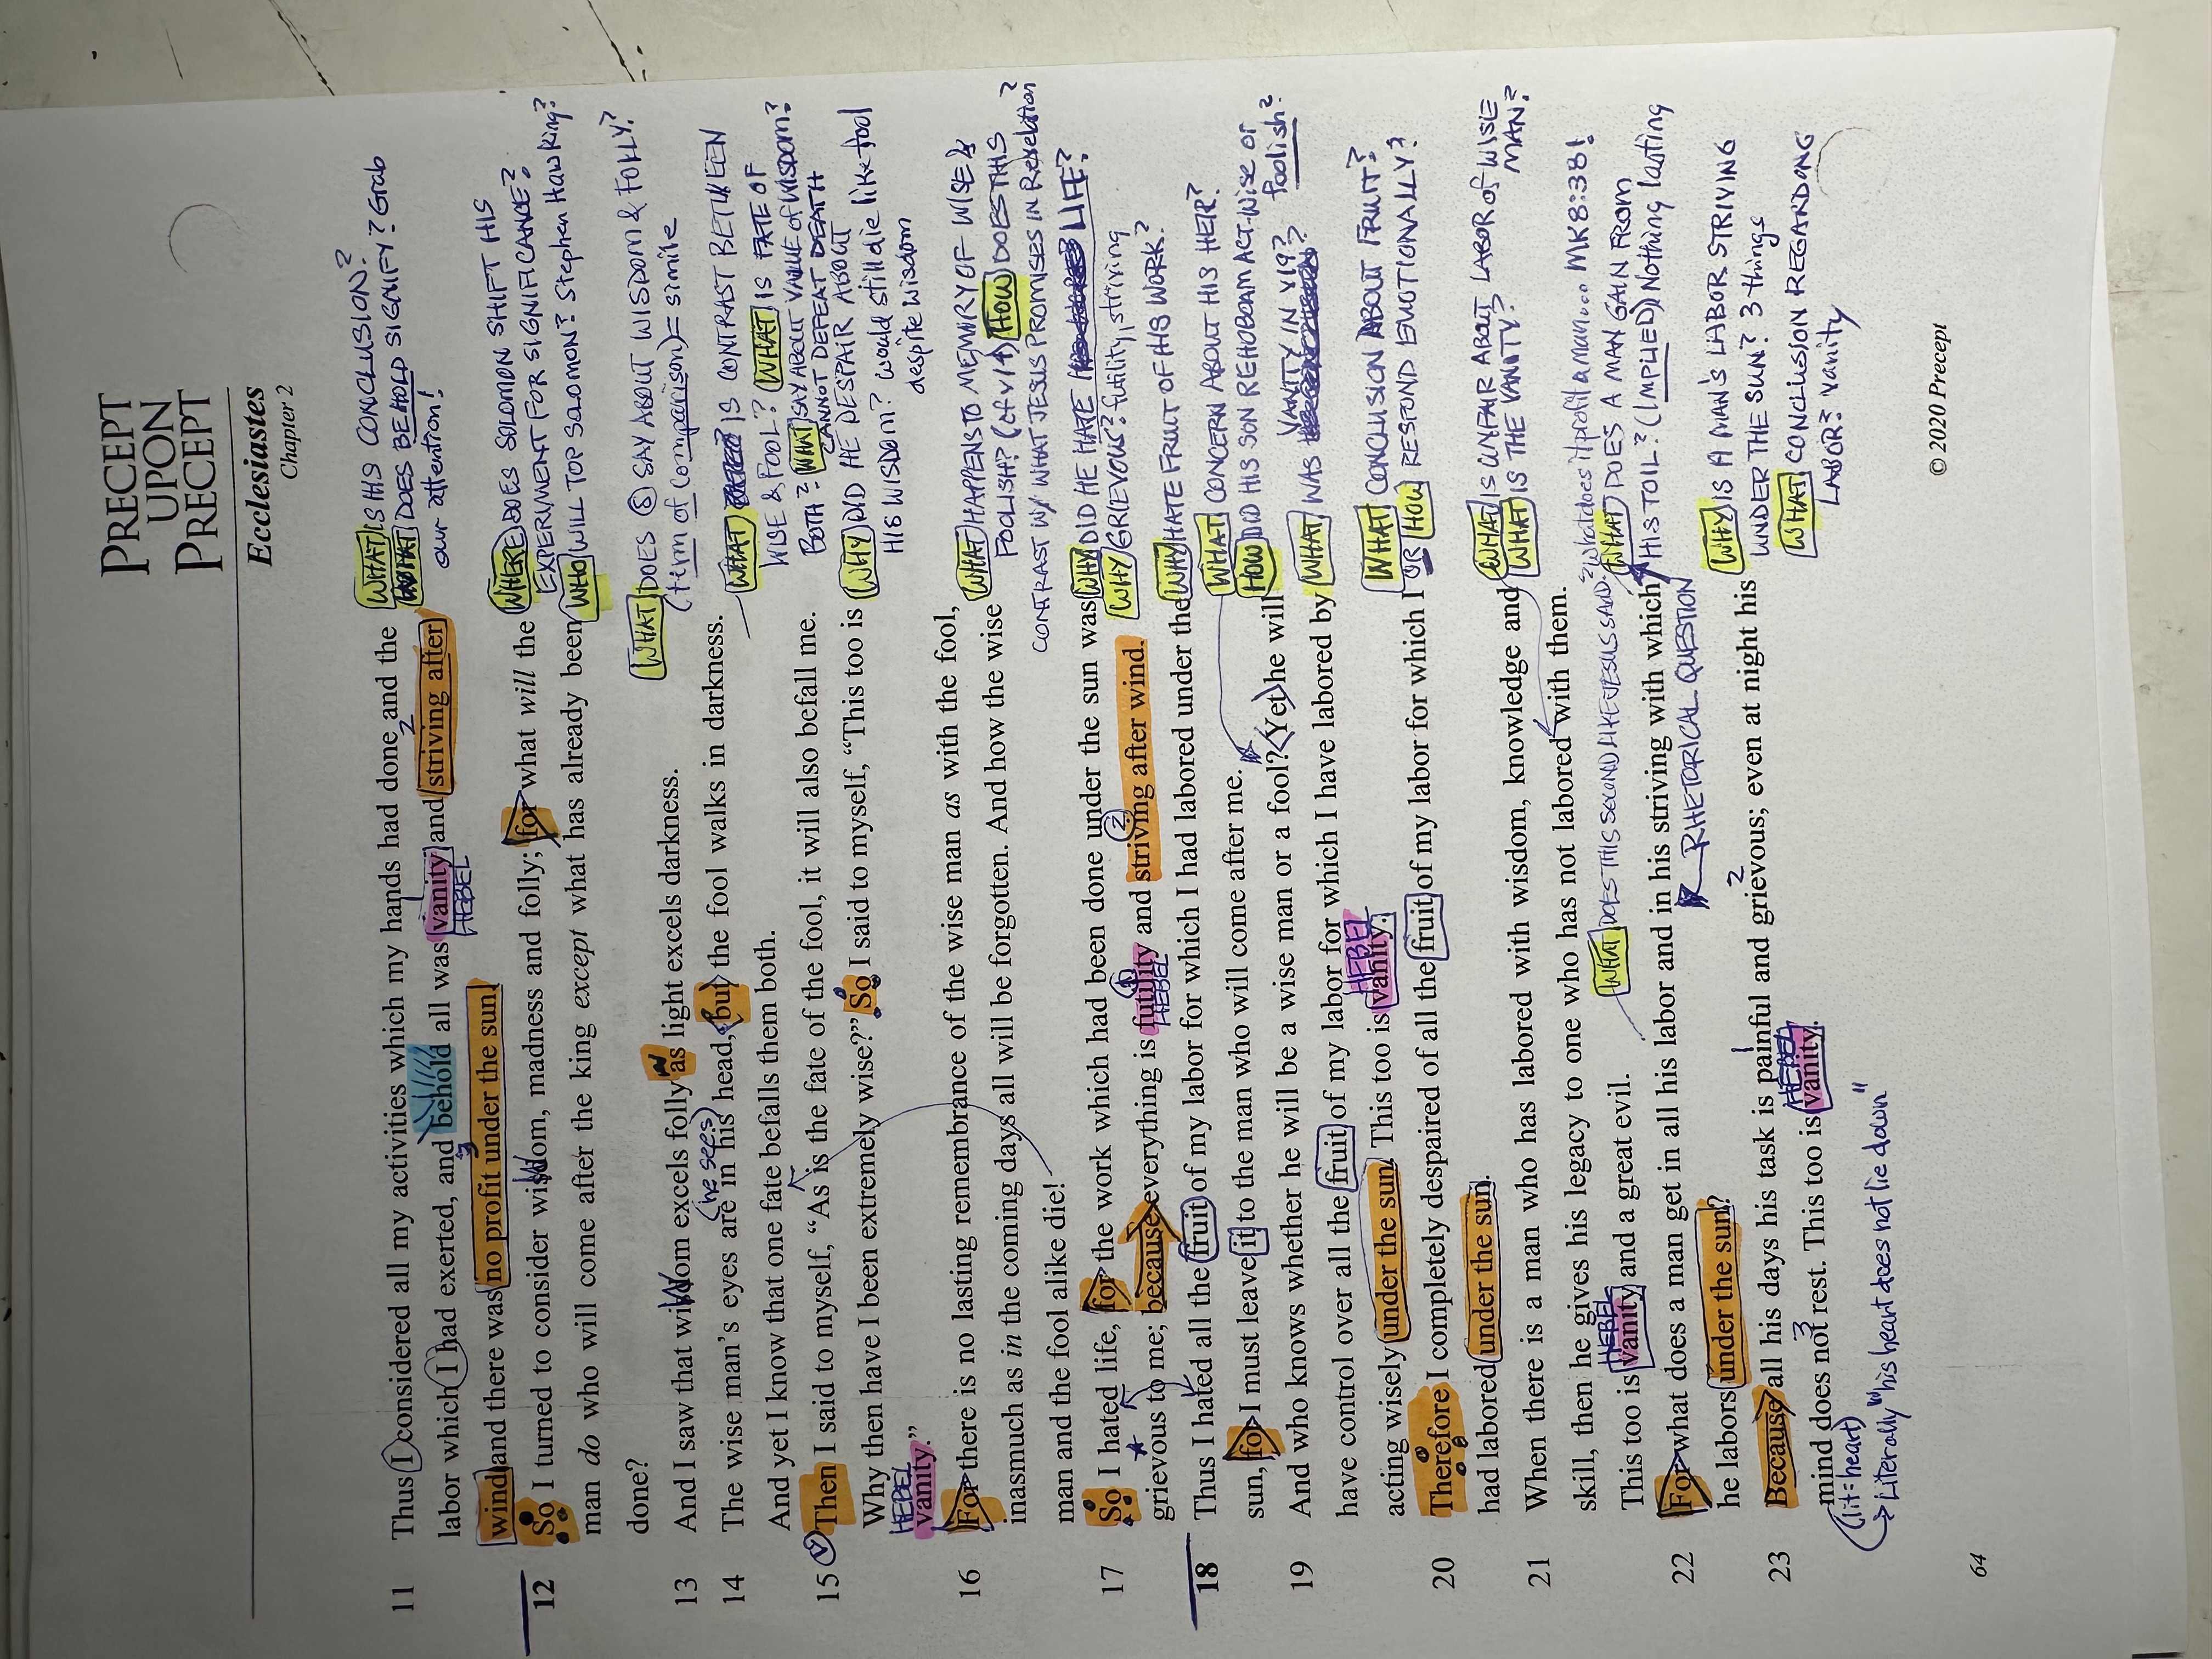 PRECEPT
UPON
PRECEPT
Ecclesiastes
Chapter 2
11 Thus I considered all my activities which my hands had done and the
labor which I had exerted, and behold all was vanity and striving after
wind and there was no profit under the sun.
HEBEL
WHAT IS HIS CONCLUSION?
WHAT DOES BEHOLD SIGNIFY? Grab
our attention!
12 So I turned to consider wisdom, madness and folly; for what will the
man do who will come after the king except what has already been
done?
WHERE DOES SOLOMON SHIFT HIS
EXPERIMENT FOR SIGNIFICANCE?
WHO WILL TOP SOLOMON? Stephen Hawking?
13 And I saw that wisdom excels folly as light excels darkness.
WHAT DOES S SAY ABOUT WISDOM & FOLLY?
(term of comparison) = simile
14 The wise man's eyes are in his head, but the fool walks in darkness.
And yet I know that one fate befalls them both.
(he sees)
WHAT IS CONTRAST BETWEEN
WISE & FOOL? WHAT IS FATE OF
BOTH? WHAT SAY ABOUT VALUE of WISDOM?
CANNOT DEFEAT DEATH
15 Then I said to myself, "As is the fate of the fool, it will also befall me.
Why then have I been extremely wise?" So I said to myself, "This too is
vanity."
HEBEL
WHY DID HE DESPAIR ABOUT
HIS WISDOM? would still die like fool
despite wisdom
16 For there is no lasting remembrance of the wise man as with the fool,
inasmuch as in the coming days all will be forgotten. And how the wise
man and the fool alike die!
WHAT HAPPENS TO MEMORY OF WISE &
FOOLISH? (cf v14) HOW DOES THIS
CONTRAST W/ WHAT JESUS PROMISES IN Revelation?
17 So I hated life, for the work which had been done under the sun was
grievous to me; because everything is futility and striving after wind.
HEBEL
WHY DID HE HATE LIFE?
WHY GRIEVOUS? futility, striving
18 Thus I hated all the fruit of my labor for which I had labored under the
sun, for I must leave it to the man who will come after me.
WHY HATE FRUIT OF HIS WORK?
WHAT CONCERN ABOUT HIS HEIR?
19 And who knows whether he will be a wise man or a fool? Yet he will
have control over all the fruit of my labor for which I have labored by
acting wisely under the sun. This too is vanity.
HEBEL
HOW DID HIS SON REHOBOAM ACT-Wise or
foolish?
WHAT WAS VANITY IN V19?
20 Therefore I completely despaired of all the fruit of my labor for which I
had labored under the sun.
WHAT CONCLUSION ABOUT FRUIT?
OR HOW RESPOND EMOTIONALLY?
21 When there is a man who has labored with wisdom, knowledge and
skill, then he gives his legacy to one who has not labored with them.
This too is vanity and a great evil.
HEBEL
WHAT IS UNFAIR ABOUT LABOR of WISE
MAN?
WHAT IS THE VANITY?
WHAT DOES THIS SOUND LIKE JESUS SAID? "What does it profit a man... MK 8:38!
22 For what does a man get in all his labor and in his striving with which
he labors under the sun?
RHETORICAL QUESTION
WHAT DOES A MAN GAIN FROM
HIS TOIL? (IMPLIED) Nothing lasting
23 Because all his days his task is painful and grievous; even at night his
mind does not rest. This too is vanity.
HEBEL
(lit = heart)
Literally "his heart does not lie down"
WHY IS A MAN'S LABOR STRIVING
UNDER THE SUN? 3 things
WHAT CONCLUSION REGARDING
LABOR? Vanity
64
© 2020 Precept